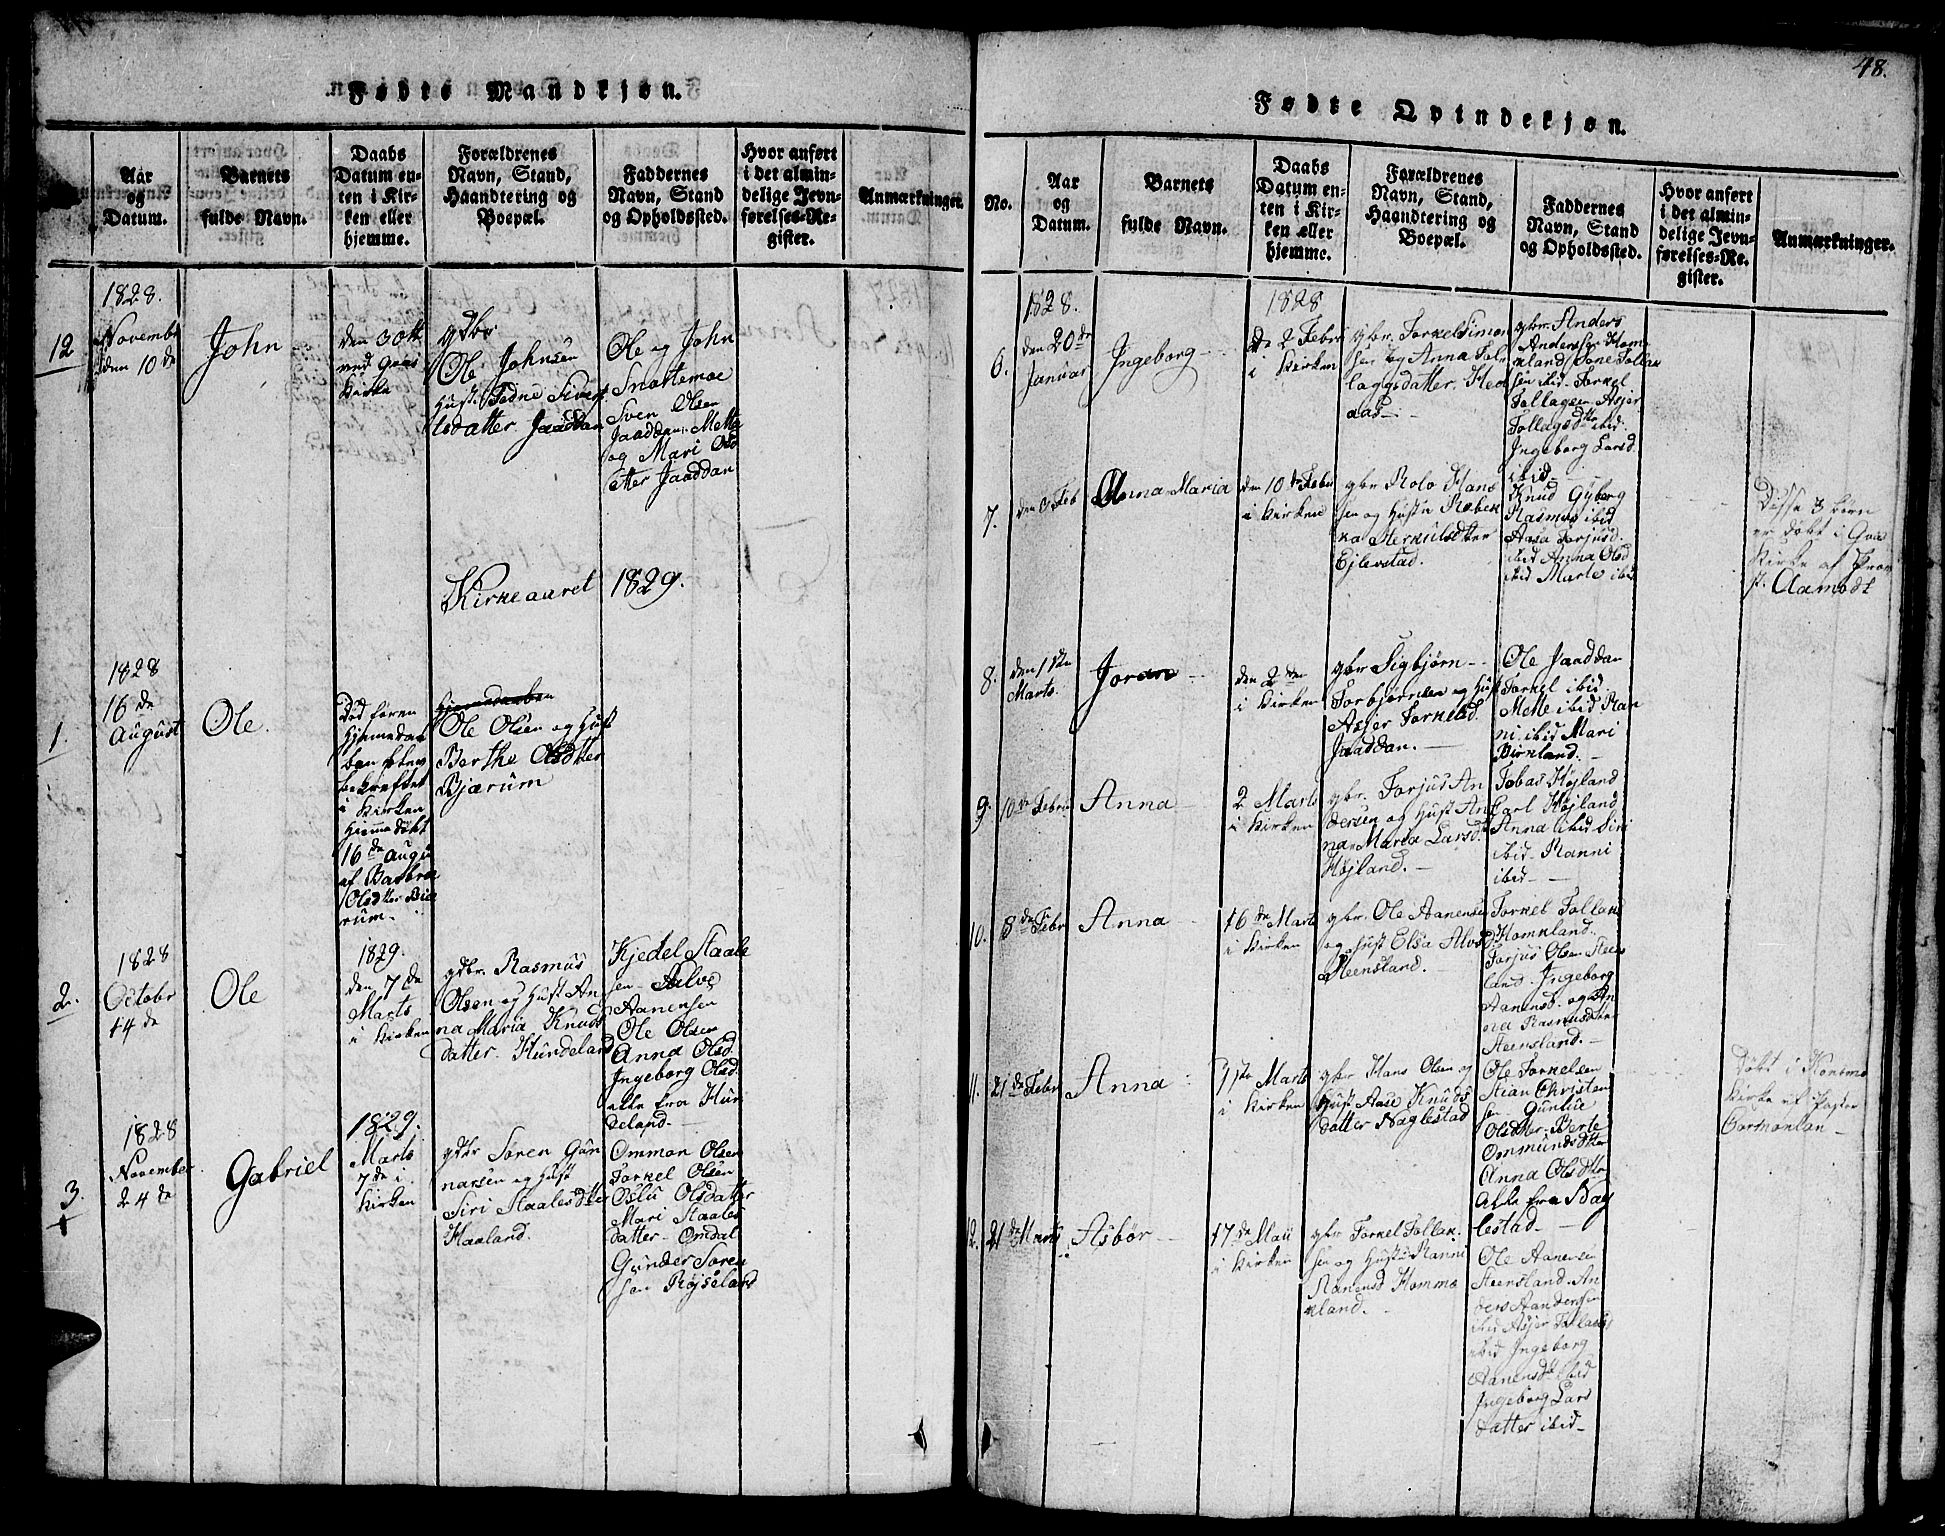 Fødte Mandkjøn.
Aar
og
Datum.
Barnets
fulde Navn.
Daabs
Datum en-
ten i Kir-
ken eller
hjemme.
Forældrenes
Navn, Stand,
Haandtering og
Boepæl.
Faddernes
Navn, Stand
og Opholdssted.
Hvor anført
i det almin-
delige Jevn-
førelses-Re-
gister.
Anmærkninger.
12
1828.
Novembr
den 10 de
John
den 30tt
ved
Kirke
gdbr
Ole Johnsen
Hust. Tedne Sivert
tsdatter Jaaddan
Ole og John
Snartemoe
Sven Olsen
Jaaddan. Mette
og Mari Olsd
atter Jaaddan
Kirkeaaret 1829.
1.
1828
16 de
August
Ole.
Hjemedaaben
i Kirken
Hjemedøbt
16 de Augu
af Barbra
Olsdtter Bie
rum.
Ole Olsen og Hust
Berthe Olsdtter
Bjærum
2.
1828
Octobr
14 de
Ole
1829.
den 7 de
Marts
i Kirken
gdbr. Rasmus
Olsen og Hust An
na Maria Knuds
datter. Hundeland
Kjedel Staale
sen Salve
Aanensen
Ole Olsen
Anna Olsd.
Ingeborg Olsd.
alle fra Hun
deland.
3.
1828
November
24 de
Gabriel
1829.
Marts
7 de i
Kirken
gdbr Søren Gun
narsen og Hust
Siri Staalesdtter
Haaland.
Ommon Olsen
Torkel Olsen
Oslu Olsdatter
Mari Staales
datter Omdal
Gunder Søren
sen Røjseland
48.
Fødte Qvindekjøn.
No.
Aar
og
Datum.
Barnets
fulde Navn.
Daabs
Datum en-
ten i Kir-
ken eller
hjemme.
Forældrenes
Navn, Stand,
Haandtering og
Boepæl.
Faddernes
Navn, Stand
og Opholdssted.
Hvor anført
i det almin-
delige Jevn-
førelses-Re-
gister.
Anmærkninger.
6.
1828.
den 20 de
Januar
Ingeborg
1828
de 2 Febr
i Kirken
gbr. Torkel Simon
sen og Anna Tol
laggsdatter. Hed
aas
gbr. Anders
Andersen Hom
kland Tone Tollak
sen ibid. Torkel
Tollagsen Asjer
Tollagsdtr ibid.
Ingeborg Larsd.
ibid.
7.
den 3 Feb
Anna Maria
den 10 de Febr
i Kirken
gbr Rolv Hans
sen og Hustr Rebek
ka Merkulsdtter
Ejlevstad.
Knud Gyberg
Rasmus ibid
Aasa Torjusd.
ibid Anna Olsd
ibid Marte ibid
Disse 3 børn
er døbt i
Kirke af Prov
st. Aamodt
8.
den 1 ste
Marts.
Joran
den 2 den
i Kirken
gbr Sigbjørn
Torbjørnsen og Hust
Asjer Torkelsd.
Jaaddan.
Ole Jaaddan
Torkel ibid
Mette ibid Ran
ni ibid Mari
Birkland.
9.
10 de Febr
Anna
2 Marts
i Kirken
gbr. Torjus An
dersen og Hust An
na Maria Larsd.
Højland.
Tobas Højland
Carl Højland
Anna ibid Siri
ibid Ranni
ibid
10.
8 de Febr
Anna
16 de Marts
i Kirken
gbr. Ole Aanensen
og Hust Elsa Alvsd
Steensland.
Torkel Tolland
Homkland.
Torjus Olsen Steens
land Ingeborg
Aanensd. og An
na Rasmusdtter
Steensland.
11.
21 de Febr
Anna
Marts
i Kirken
gbr Hans Olsen og
Hust Aase Knuds
datter Naglestad
Ole Torkelsen
Stian Christen
sen Gunlue
Olsdtter Berte
Ommundsdtter
Anna Olsdtter
Alle fra Nag
lestad
Døbt i
Kirke af Pastor
12.
21 de Marts
Asbør
17 de Mai
i Kirken
gbr Torkel Tollak
sen og Hustr Ranni
Homme
kland.
Ole Aanensen
Steensland. An
ders Andersen
ibid Asjer
ibid Ingeborg
Aanensd ibid
Ingeborg Lars
datter ibid